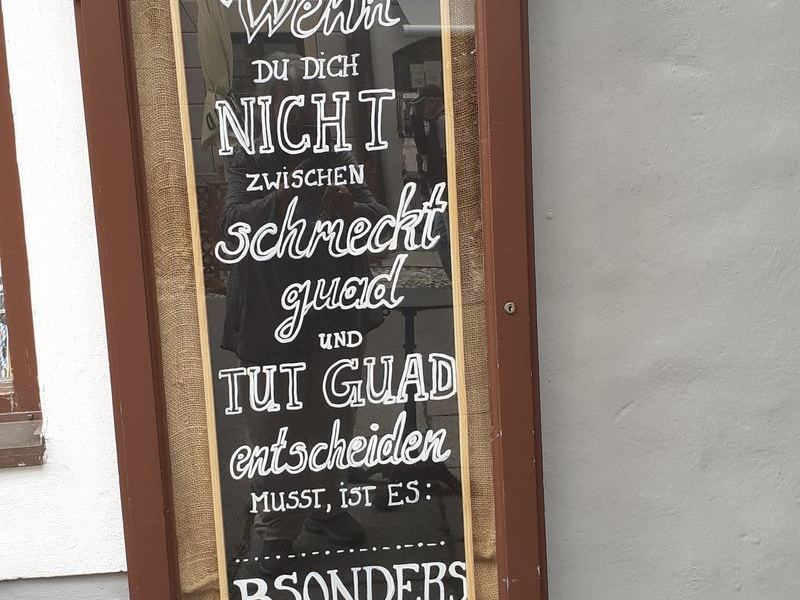 Wenn
DU DICH
NICHT
ZWISCHEN
schmeckt
guad
UND
TUT GUAD
entscheiden
MUSST, IST ES:
BSONDERS